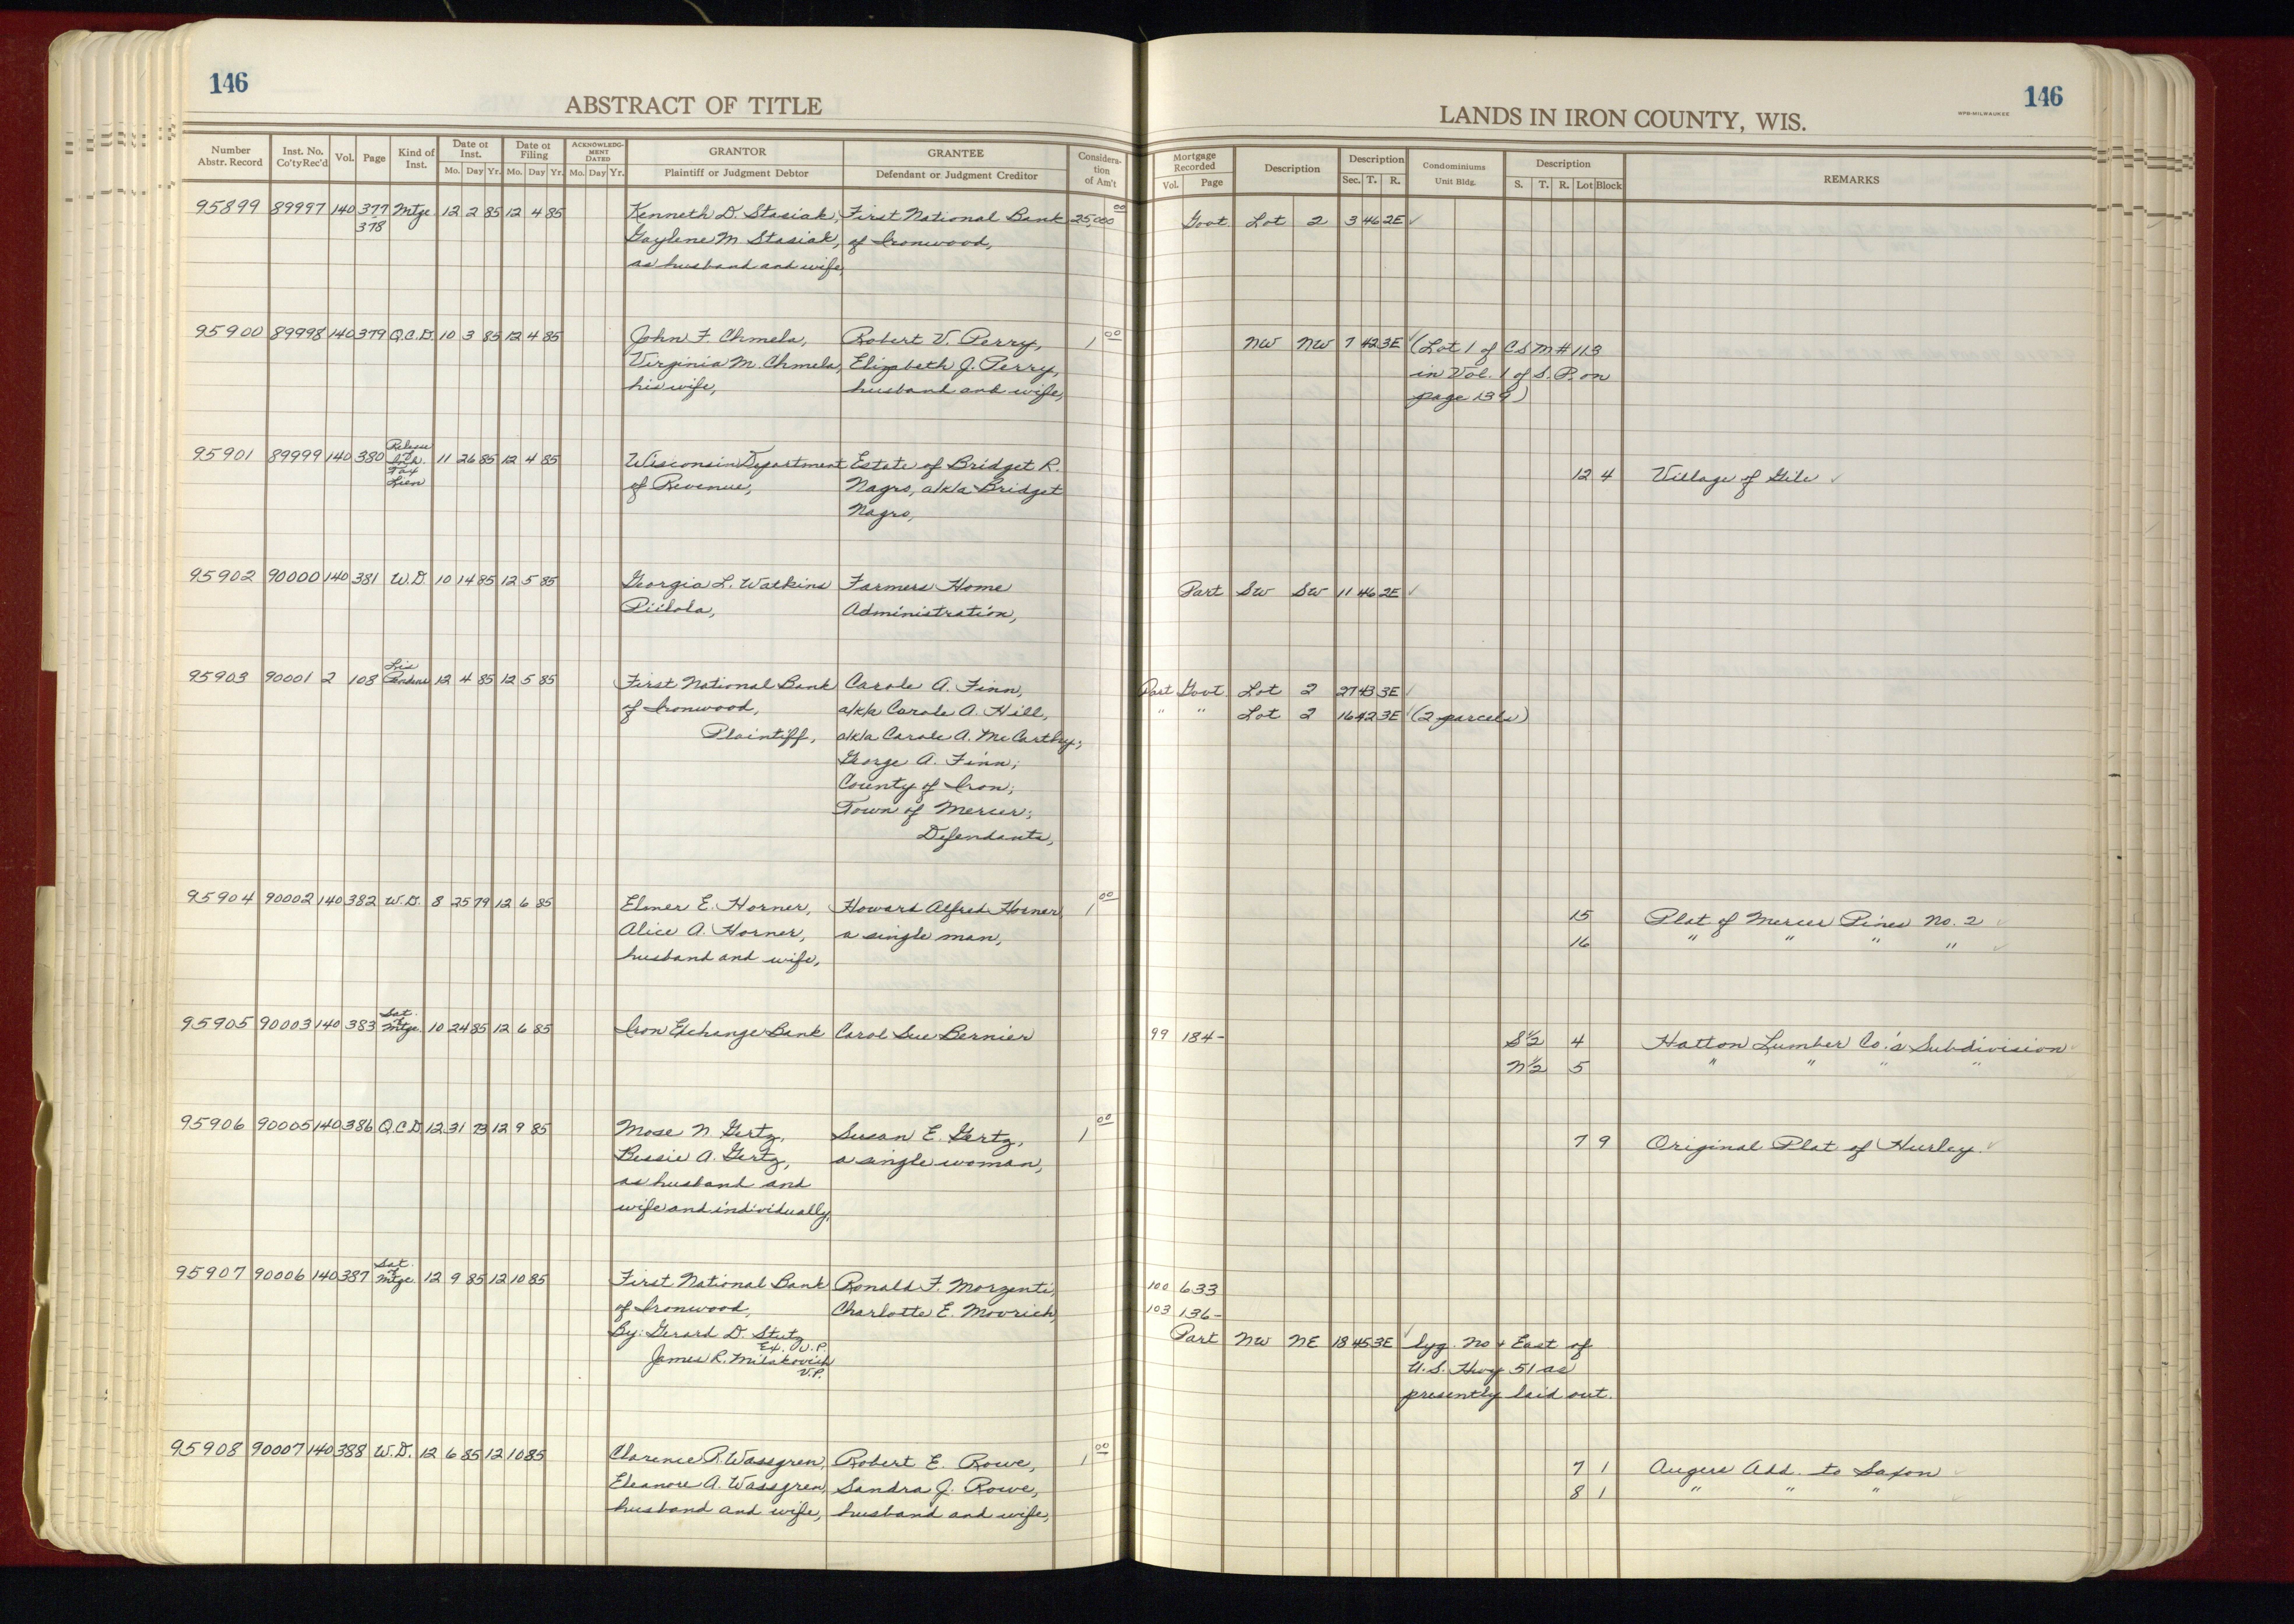 146
ABSTRACT OF TITLE
Number Abstr. Record | Inst. No. Co'ty Rec'd | Vol. | Page | Kind of Inst. | Date of Inst. Mo. Day Yr. | Date of Filing Mo. Day Yr. | ACKNOWLEDGMENT DATED Mo. Day Yr. | GRANTOR Plaintiff or Judgment Debtor | GRANTEE Defendant or Judgment Creditor | Consideration of Am't
95899 89997 140 377 Mtge 12 2 85 12 4 85 Kenneth D. Stasiak, First National Bank 25,000 00
378 Gaylene M. Stasiak, of Ironwood,
as husband and wife,
95900 89998 140 379 Q.C.D. 10 3 85 12 4 85 John F. Chmela, Robert V. Perry, 1 00
Virginia M. Chmela, Elizabeth J. Perry,
his wife, husband and wife,
95901 89999 140 380 Release of Tax Lien 11 26 85 12 4 85 Wisconsin Department Estate of Bridget R.
of Revenue, Nagro, a/k/a Bridget
Nagro,
95902 90000 140 381 W.D. 10 14 85 12 5 85 Georgia L. Watkins Farmers Home
Piilola, Administration,
95903 90001 2 108 Lis Pendens 12 4 85 12 5 85 First National Bank Carole A. Finn,
of Ironwood, a/k/a Carole A. Hill,
Plaintiff, a/k/a Carole A. McCarthy;
George A. Finn;
County of Iron;
Town of Mercer;
Defendants,
95904 90002 140 382 W.D. 8 25 79 12 6 85 Elmer E. Horner, Howard Alfred Horner 1 00
Alice A. Horner, a single man,
husband and wife,
95905 90003 140 383 Sat. of Mtge. 10 24 85 12 6 85 Iron Exchange Bank Carol Sue Bernier
95906 90005 140 386 Q.C.D 12 31 73 12 9 85 Mose N Gertz, Susan E. Gertz, 1 00
Bessie A. Gertz, a single woman,
as husband and
wife and individually,
95907 90006 140 387 Sat. of Mtge. 12 9 85 12 10 85 First National Bank Ronald F. Morzenti,
of Ironwood, Charlotte E. Movrich,
By: Gerard D. Stutz
Ex. V.P.
James R. Milakovich
V.P.
95908 90007 140 388 W.D. 12 6 85 12 10 85 Clarence P. Wassgren, Robert E. Rowe, 1 00
Eleanore A. Wassgren, Sandra J. Rowe,
husband and wife, husband and wife,
146
LANDS IN IRON COUNTY, WIS.
WPB-MILWAUKEE
Mortgage Recorded Vol. Page | Description | Description Sec. T. R. | Condominiums Unit Bldg. | Description S. T. R. Lot Block | REMARKS
Govt Lot 2 3 46 2E ✓
NW NW 7 42 3E ✓ (Lot 1 of CSM # 113
in Vol. 1 of S.P. on
page 139)
12 4 Village of Gile ✓
Part SW SW 11 46 2E ✓
Part Govt Lot 2 27 43 3E ✓
" " Lot 2 16 42 3E ✓ (2 parcels)
15 Plat of Mercer Pines No. 2 ✓
16 " " " " ✓
99 184- S½ 4 Hatton Lumber Co.'s Subdivision ✓
N½ 5 " " " "
7 9 Original Plat of Hurley. ✓
100 633
103 136-
Part NW NE 18 45 3E ✓ lyg. No + East of
U.S. Hwy 51 as
presently laid out.
7 1 Augers Add. to Saxon ✓
8 1 " " " ✓